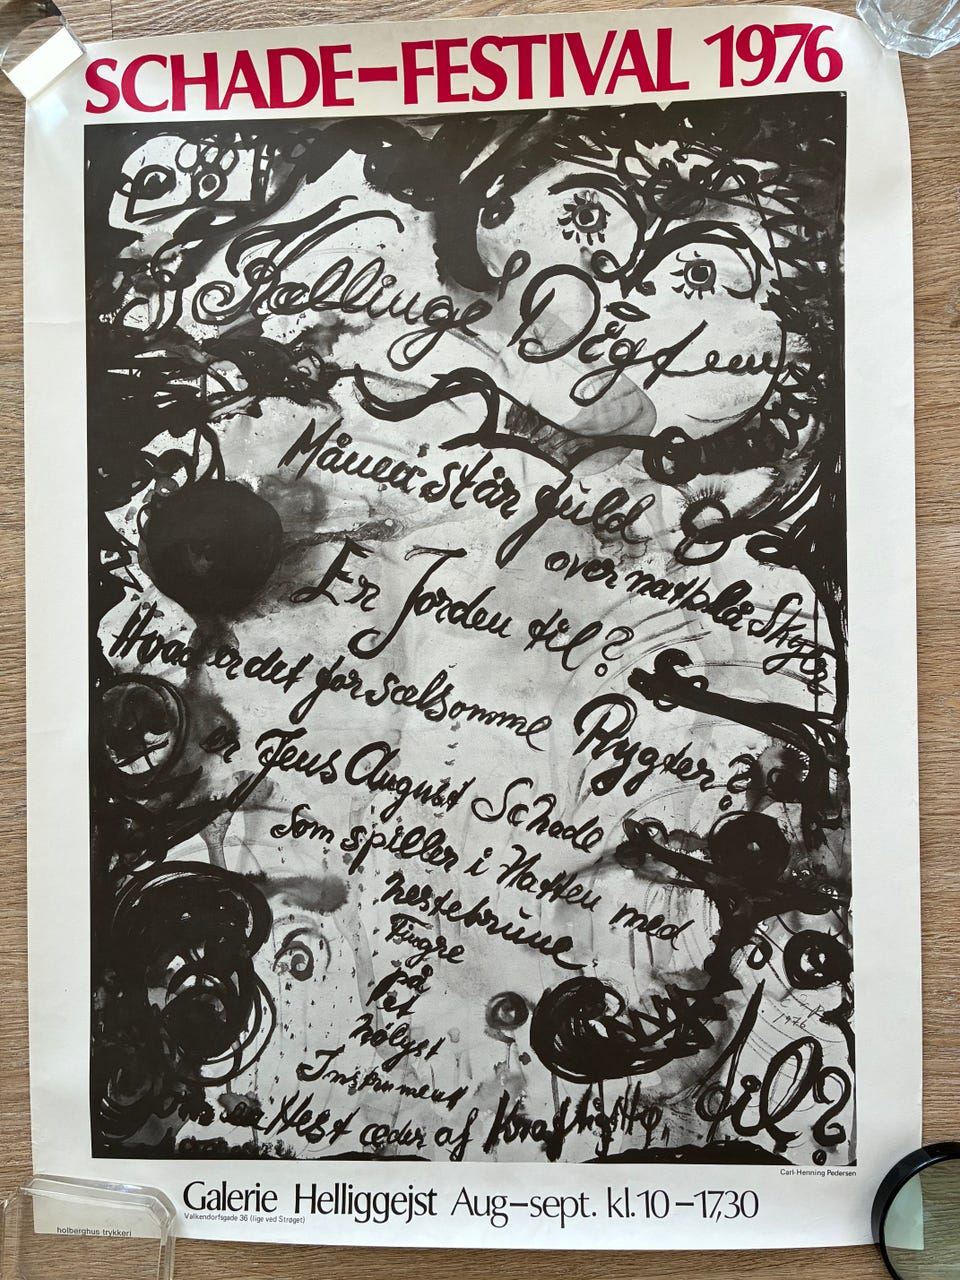 SCHADE-FESTIVAL 1976
Kællinge Digteren
Månen står fuld
over natblå Skyer
Er Jorden til?
Hvad er det for sælsomme Rygter?
er Jens August Schade
som spiller i Natten med
nestebrune
Fingre
på
et
nølyst
Instrument
om en Hest æder af Krafthitte,
til?
1976
Carl-Henning Pedersen
Galerie Helliggejst Aug-sept. kl. 10-17,30
Valkendorfsgade 36 (lige ved Strøget)
holberghus trykkeri